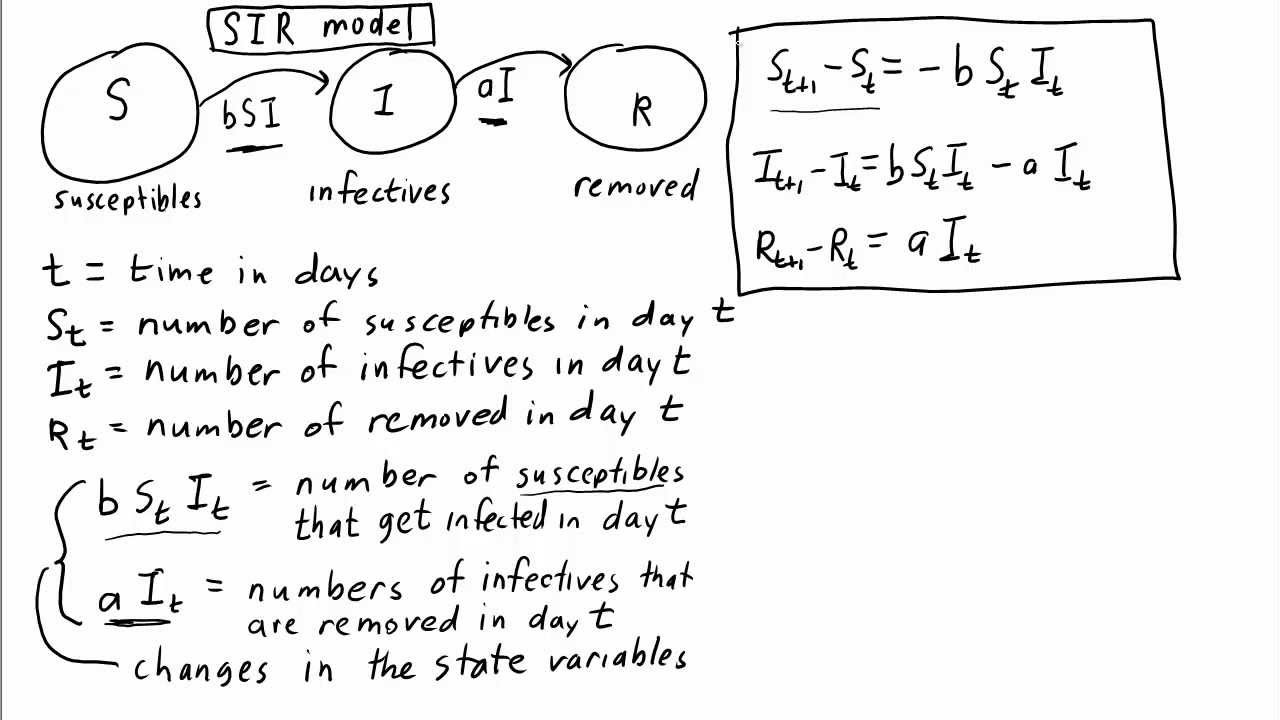 SIR model
S
bSI
I
aI
R
susceptibles
infectives
removed
S_{t+1} - S_t = - b S_t I_t
I_{t+1} - I_t = b S_t I_t - a I_t
R_{t+1} - R_t = a I_t
t = time in days
S_t = number of susceptibles in day t
I_t = number of infectives in day t
R_t = number of removed in day t
b S_t I_t = number of susceptibles
that get infected in day t
a I_t = numbers of infectives that
are removed in day t
changes in the state variables